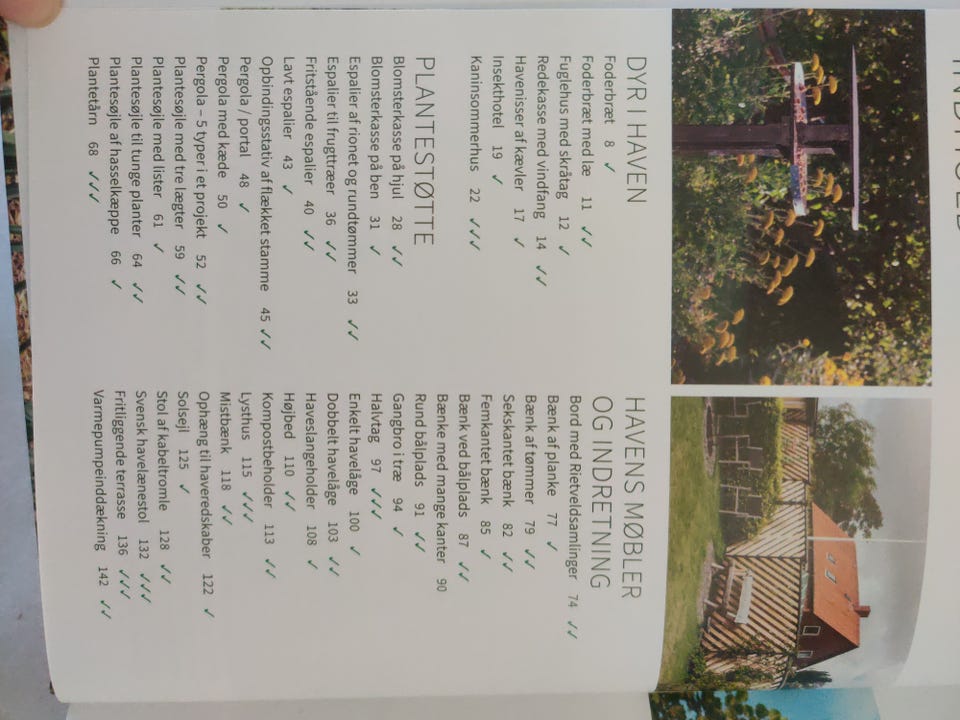 DYR I HAVEN
Foderbræt 8 ✓
Foderbræt med læ 11 ✓✓
Fuglehus med skråtag 12 ✓
Redekasse med vindfang 14 ✓✓
Havenisser af kævler 17 ✓
Insekthotel 19 ✓
Kaninsommerhus 22 ✓✓✓
PLANTESTØTTE
Blomsterkasse på hjul 28 ✓✓
Blomsterkasse på ben 31 ✓
Espalier af rionet og rundtømmer 33 ✓✓
Espalier til frugttræer 36 ✓✓
Fritstående espalier 40 ✓✓
Lavt espalier 43 ✓
Opbindingsstativ af flækket stamme 45 ✓✓
Pergola / portal 48 ✓
Pergola med kæde 50 ✓
Pergola – 5 typer i et projekt 52 ✓✓
Plantesøjle med tre lægter 59 ✓✓
Plantesøjle med lister 61 ✓
Plantesøjle til tunge planter 64 ✓✓
Plantesøjle af hasselkæppe 66 ✓
Plantetårn 68 ✓✓✓
HAVENS MØBLER
OG INDRETNING
Bord med Rietveldsamlinger 74 ✓✓
Bænk af planke 77 ✓
Bænk af tømmer 79 ✓✓
Sekskantet bænk 82 ✓✓
Femkantet bænk 85 ✓
Bænk ved bålplads 87 ✓✓
Bænke med mange kanter 90
Rund bålplads 91 ✓✓
Gangbro i træ 94 ✓
Halvtag 97 ✓✓✓
Enkelt havelåge 100 ✓
Dobbelt havelåge 103 ✓✓
Haveslangeholder 108 ✓
Højbed 110 ✓✓
Kompostbeholder 113 ✓✓
Lysthus 115 ✓✓✓
Mistbænk 118 ✓✓
Ophæng til haveredskaber 122 ✓
Solsejl 125 ✓
Stol af kabeltromle 128 ✓✓
Svensk havelænestol 132 ✓✓✓
Fritliggende terrasse 136 ✓✓✓
Varmepumpeinddækning 142 ✓✓